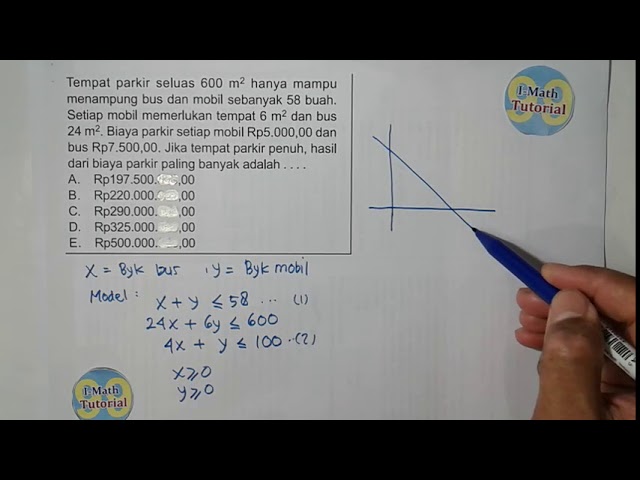 Tempat parkir seluas 600 m² hanya mampu
menampung bus dan mobil sebanyak 58 buah.
Setiap mobil memerlukan tempat 6 m² dan bus
24 m². Biaya parkir setiap mobil Rp5.000,00 dan
bus Rp7.500,00. Jika tempat parkir penuh, hasil
dari biaya parkir paling banyak adalah . . . .
A. Rp197.500. ,00
B. Rp220.000. ,00
C. Rp290.000. ,00
D. Rp325.000. ,00
E. Rp500.000. ,00
I-Math
Tutorial
X = Byk bus , y = Byk mobil
Model : x + y ≤ 58 ... (1)
24x + 6y ≤ 600
4x + y ≤ 100 ..(2)
x ⩾ 0
y ⩾ 0
I-Math
Tutorial